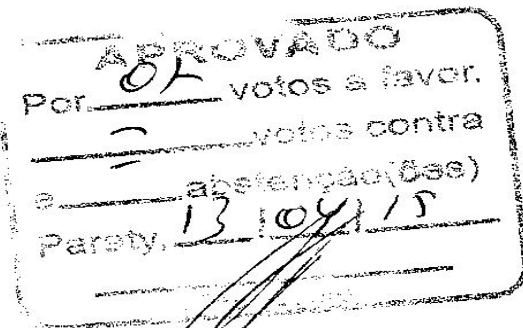 APROVADO
Por votos a favor.
votos contra
e abstenção(ões)
Paraty, 13/04/15